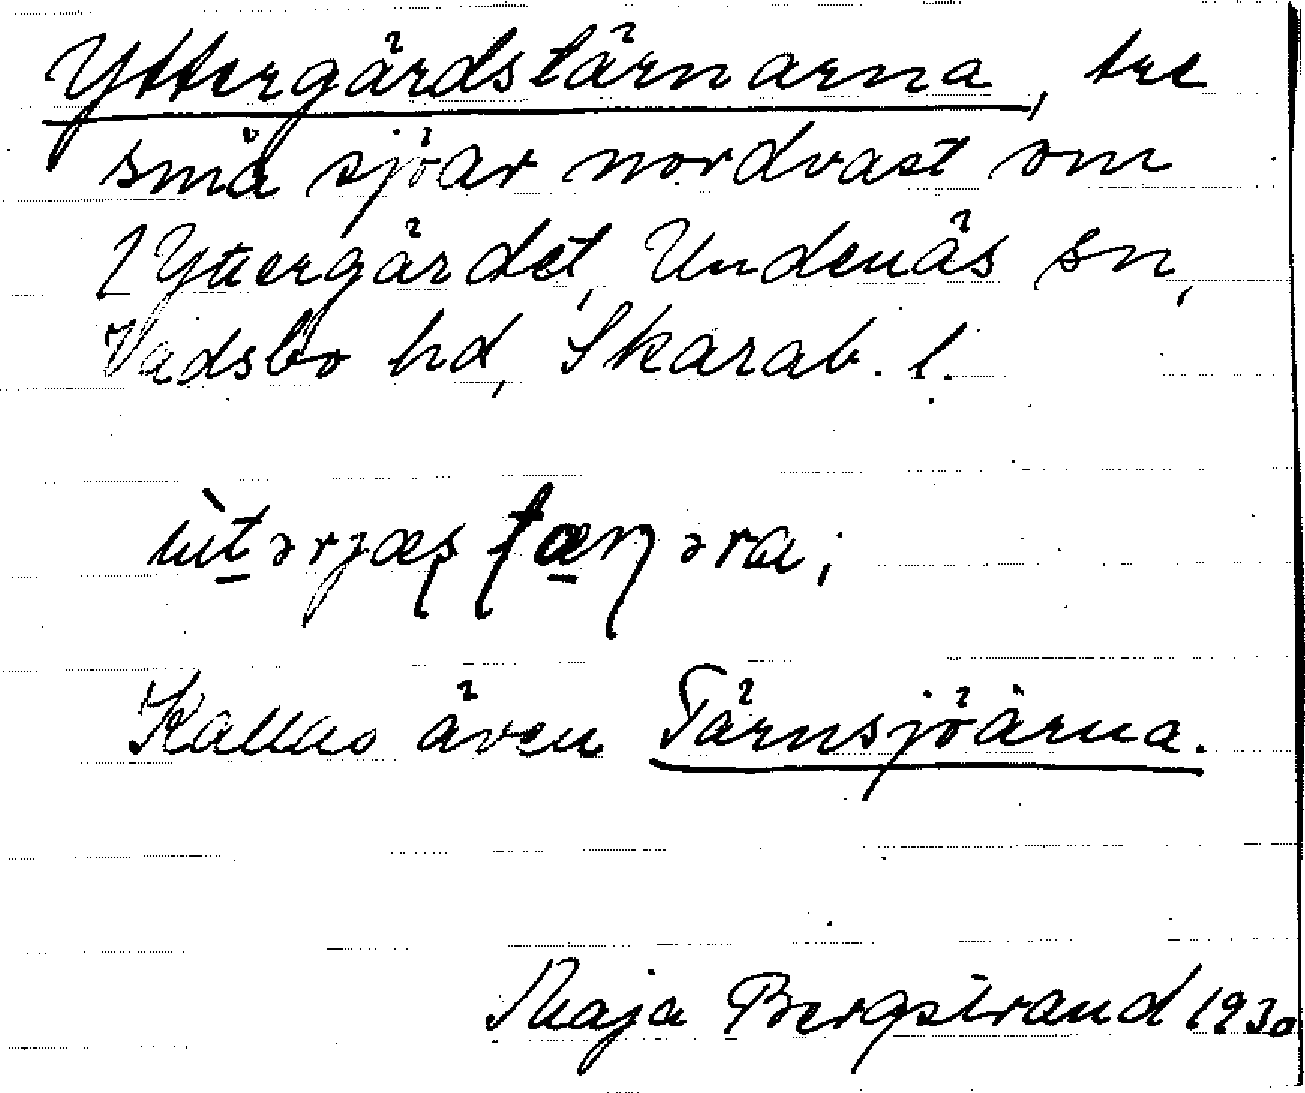 Yttergärdstärnarna, tre
små sjöar nordvast om
[Yttergärdet, Undenäs sn,
Vadsbo hd, Skarab. l.
Kallas även Tärnsjöärna.
Maja Bergstrand 1930